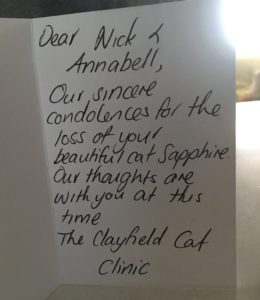 Dear Nick &
Annabell,
Our sincere
condolences for the
loss of your
beautiful cat Sapphire.
Our thoughts are
with you at this
time
The Clayfield Cat
Clinic